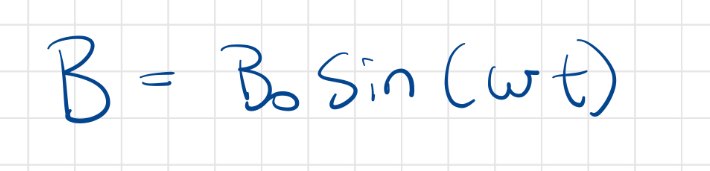 B = B₀ sin (ωt)